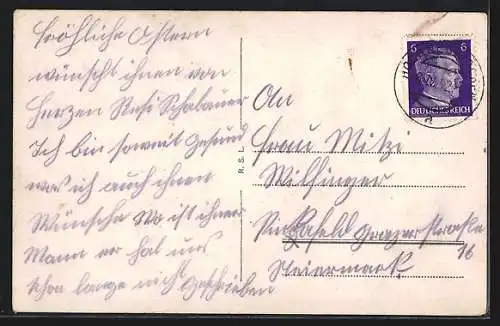 Fröhliche Ostern
wünscht ihnen von
Herzen Resi Schabauer
Ich bin soweit gesund
was ich auch ihnen
Wünsche Wo ist ihrer
Mann er hat uns
schon lange nicht geschrieben
R. S. L.
6 6
DEUTSCHES REICH
An
Frau Mitzi
Wilfinger
Pinkafeld Grazerstraße
76
Steiermark